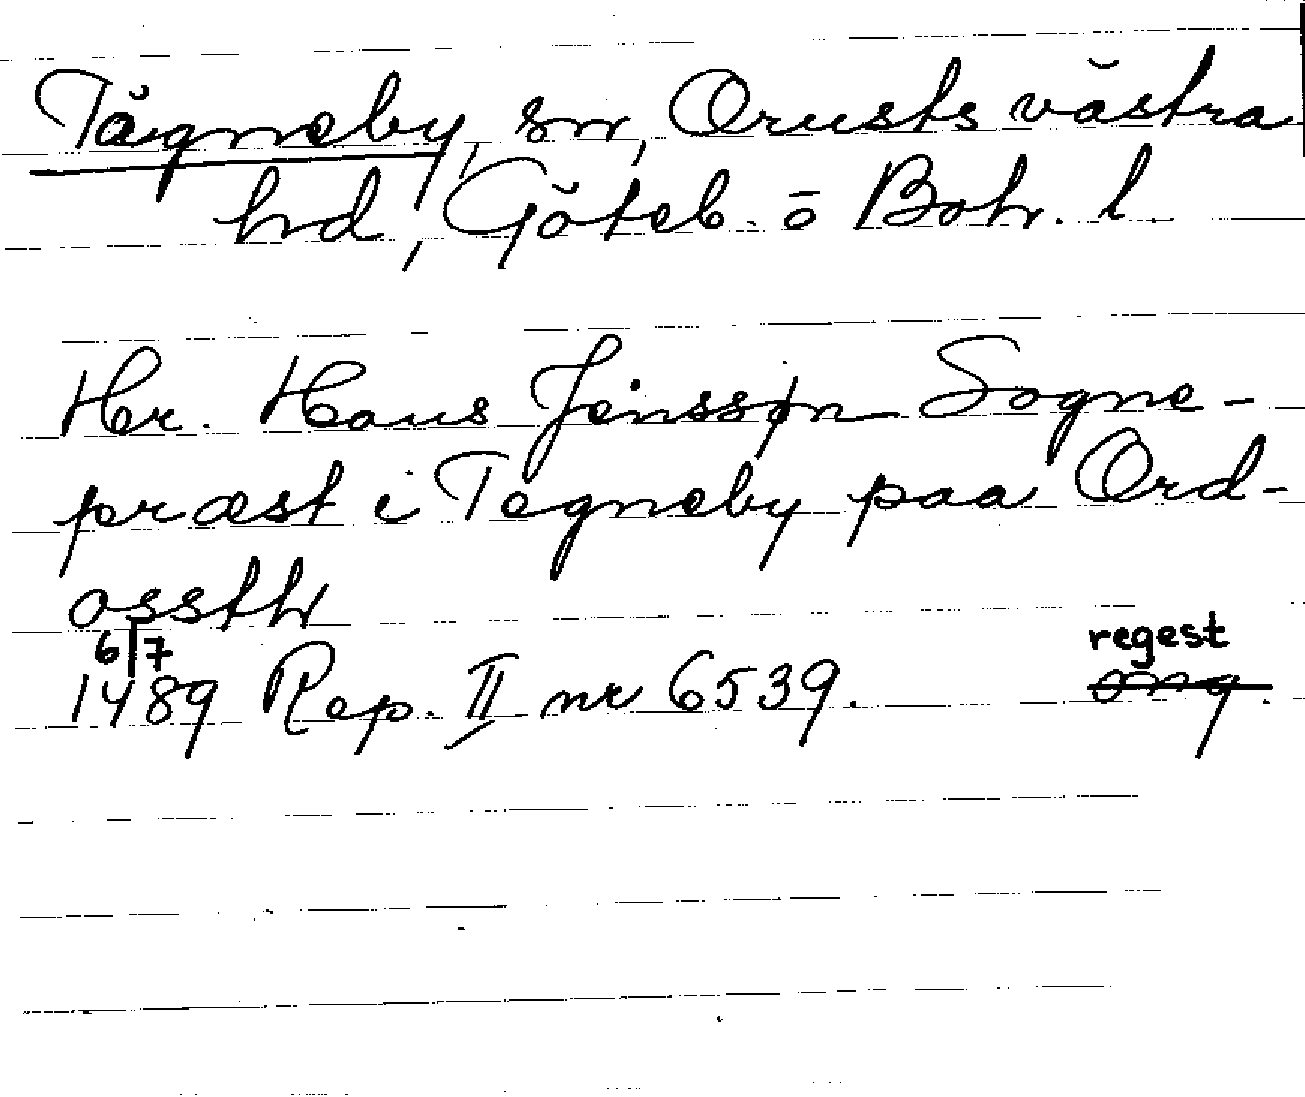 Tägneby, sn, Orusts västra
hd, Göteb. o Boh. l.
Hr. Hans Jenssøn Sogne-
præst i Tegneby paa Ord-
ossth
6/7
1489 Rep. II nr 6539.
regest
org.